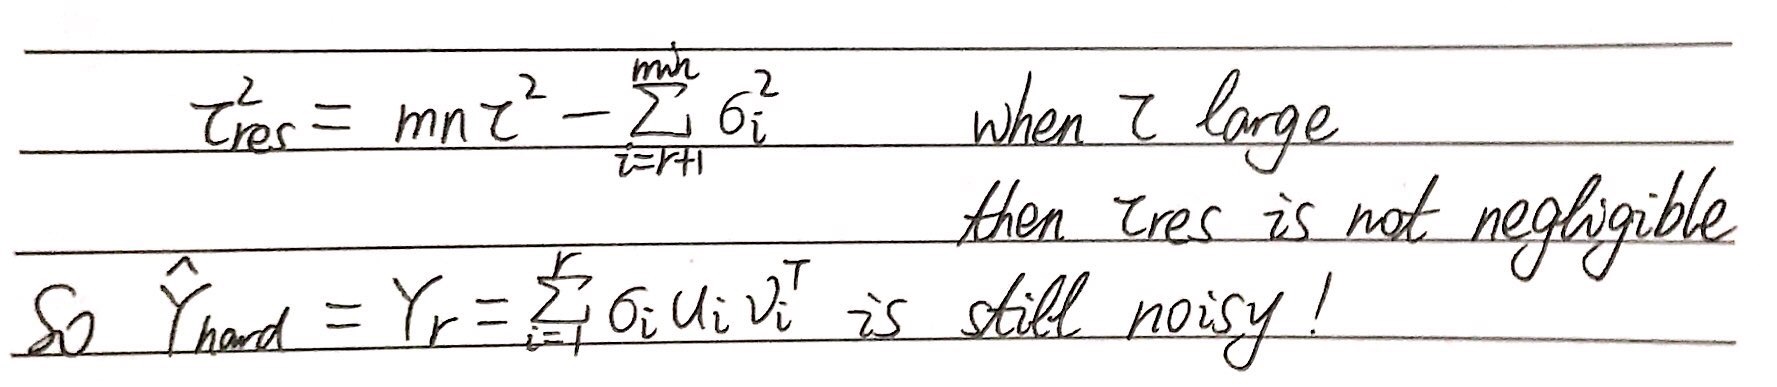 τ²res = mnτ² − Σ_{i=r+1}^{min} σᵢ² when τ large
then τres is not negligible
So Ŷhard = Yr = Σ_{i=1}^{r} σᵢ uᵢ νᵢᵀ is still noisy!